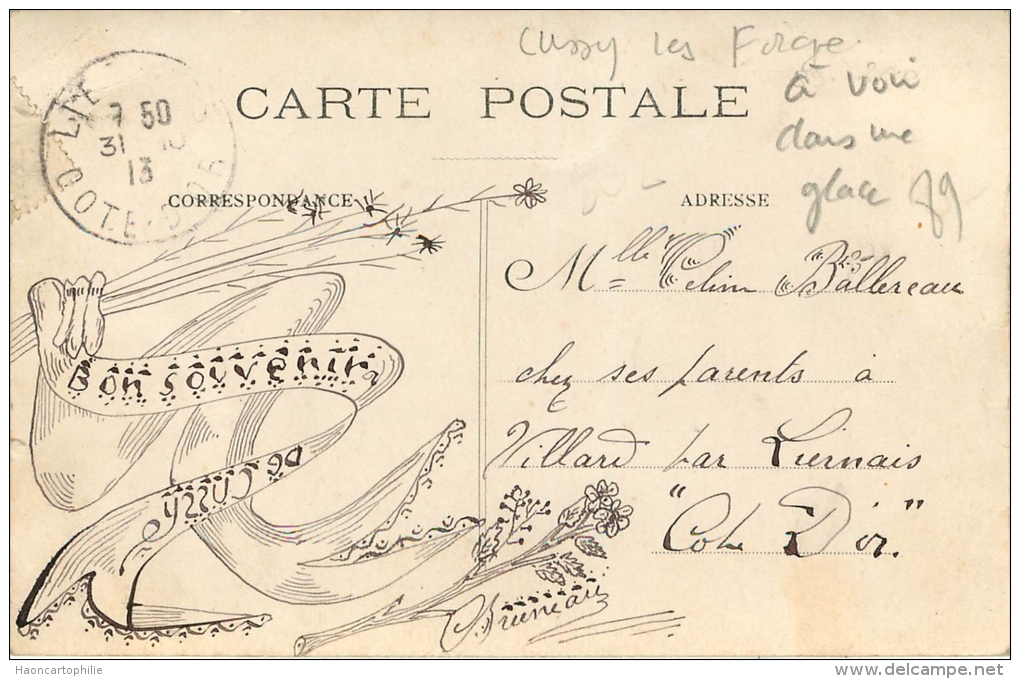 Cussy les Forge
à voir
dans une
glace 89
CARTE POSTALE
7 50
31 10
13
COTE-D'OR
CORRESPONDANCE
ADRESSE
Bon Souvenir
De Cussy
Bruneau
Mlle Celina Ballereau
chez ses parents à
Villard par Liernais
"Cote D'or."
Haoncartophilie
www.delcampe.net